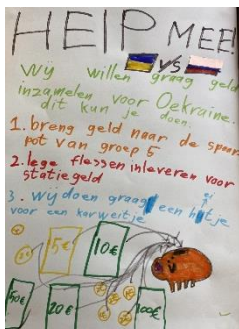 HELP MEE!
VS
Wij willen graag geld
inzamelen voor Oekraine.
dit kun je doen:
1. breng geld naar de spaar
pot van groep 5
2. lege flessen inleveren voor
statiegeld
3. wij doen graag een
voor een karweitje
5€
10€
50€
20€
100€